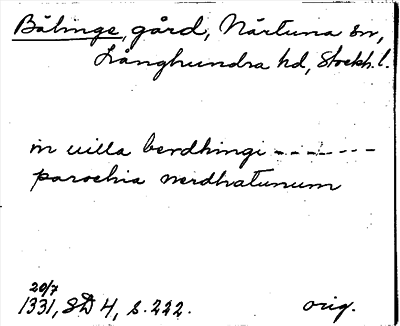 Bälinge, gård, Närtuna sn,
Långhundra hd, Stockh. l.
in uilla berdhingi - - - - - - -
parochia nerdhatunum
20/7
1331, SD 4, s. 222. orig.